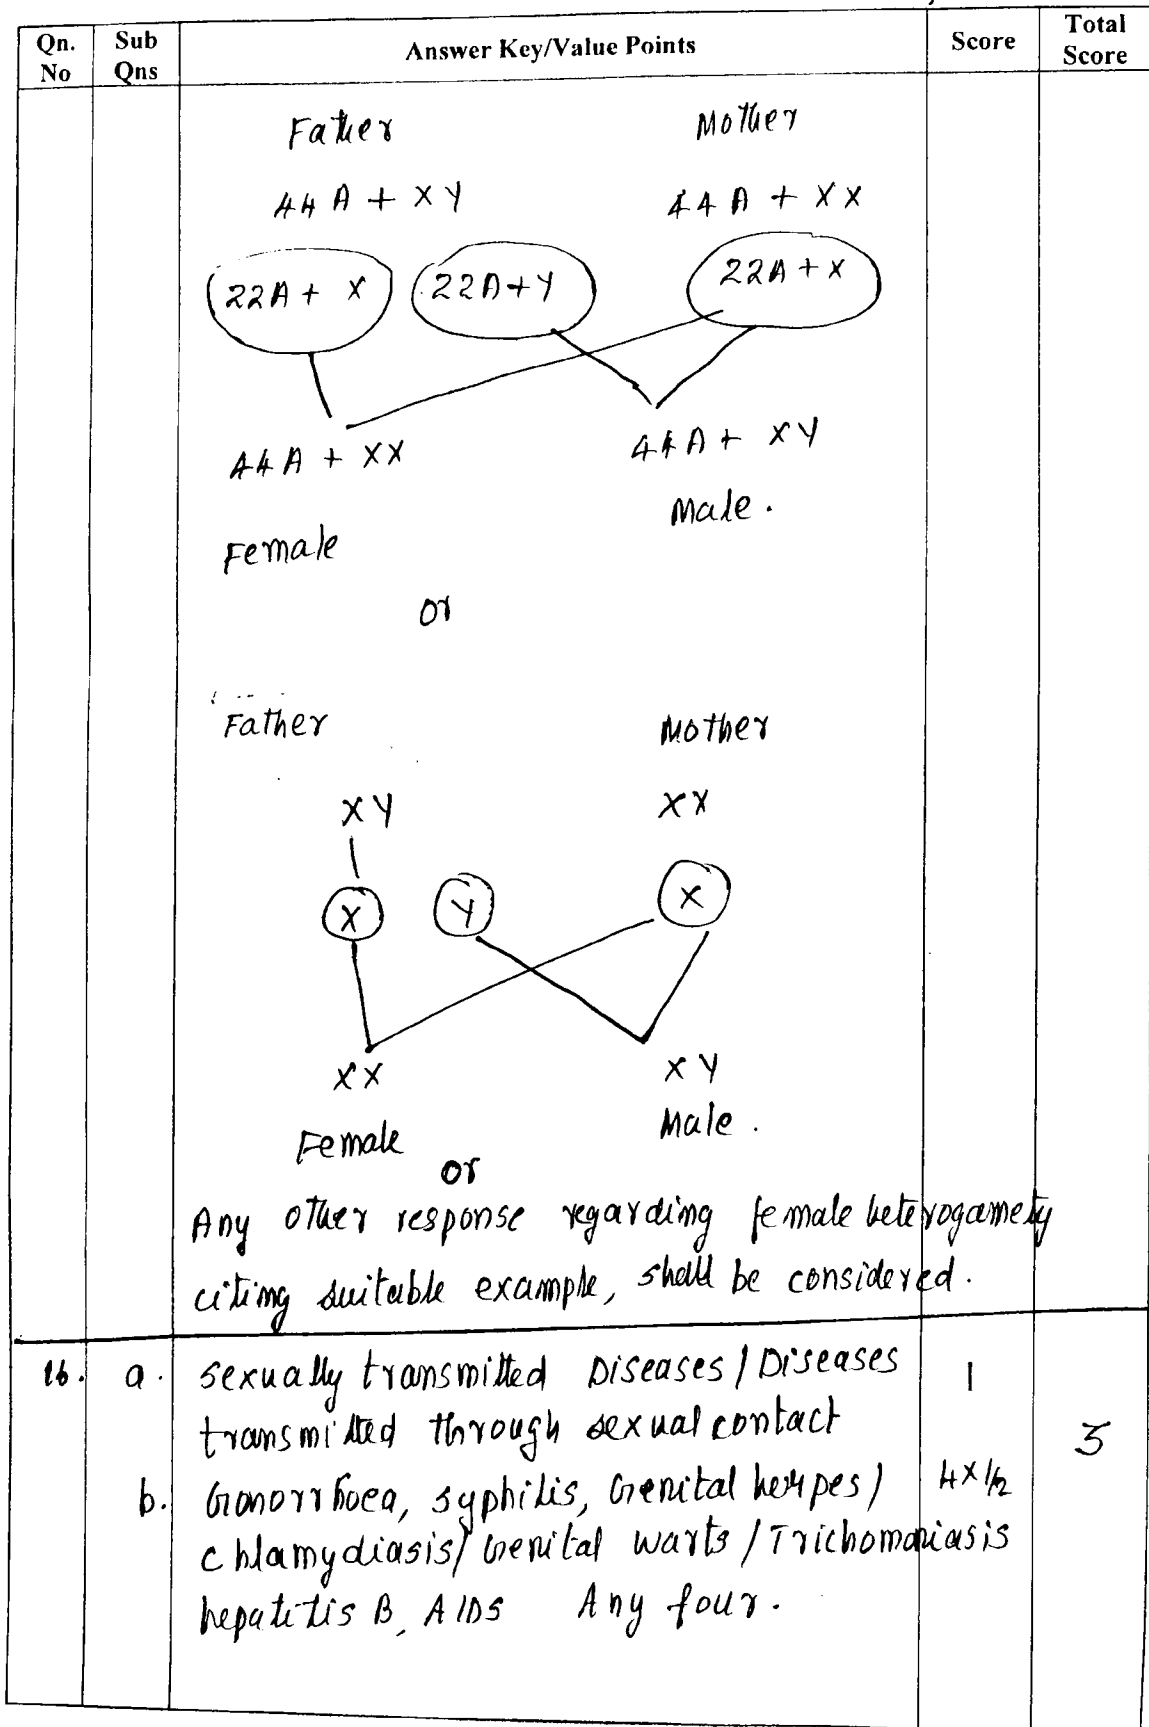 Qn. No Sub Qns Answer Key/Value Points Score Total Score
Father Mother
44A + XY 44A + XX
22A + X 22A+Y 22A + X
44A + XX 44A + XY
Female Male.
or
Father Mother
XY XX
X Y X
XX XY
Female Male.
or
Any other response regarding female heterogamety
citing suitable example, shall be considered.
16. a. Sexually transmitted Diseases / Diseases 1
transmitted through sexual contact 3
b. Gonorrhoea, syphilis, Genital herpes / 4x1/2
chlamydiasis / Genital warts / Trichomoniasis
hepatitis B, AIDS Any four.